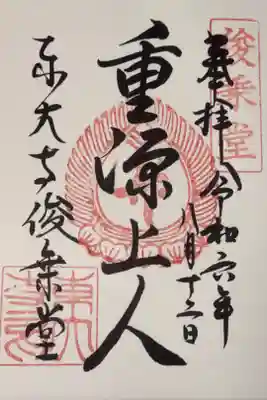 俊乗堂
奉拝 令和六年
八月十二日
重源上人
東大寺俊乗堂